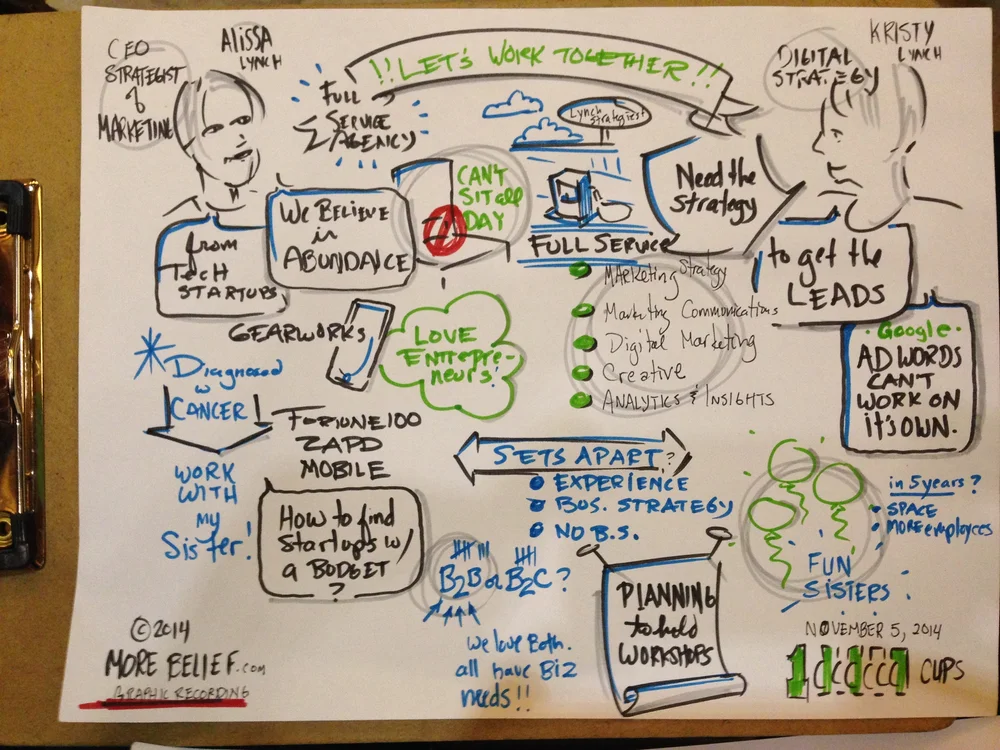 CEO
STRATEGIST
&
MARKETING
ALISSA
LYNCH
!! LET'S WORK TOGETHER !!
KRISTY
LYNCH
DIGITAL
STRATEGY
FULL
SERVICE
AGENCY
Lynch
Strategies!
from
TECH
STARTUPS,
WE BELIEVE
in
ABUNDANCE
CAN'T
SIT all
DAY
Need the
Strategy
to get the
LEADS
FULL SERVICE
MARKETING Strategy
Marketing Communications
Digital Marketing
Creative
ANALYTICS & INSIGHTS
GEARWORKS
LOVE
Entrepre-
neurs!
Google
ADWORDS
CAN'T
WORK ON
it's OWN.
Diagnosed
w
CANCER
WORK
WITH
my
Sister!
FORTUNE 100
ZAPD
MOBILE
How to find
Startups w/
a BUDGET
?
SETS APART?
EXPERIENCE
BUS. STRATEGY
NO B.S.
B2B or B2C?
we love Both.
all have Biz
needs!!
PLANNING
to hold
WORKSHOPS
in 5 years?
SPACE
MORE employees
FUN
SISTERS
©2014
MORE BELIEF.com
GRAPHIC RECORDING
NOVEMBER 5, 2014
CUPS